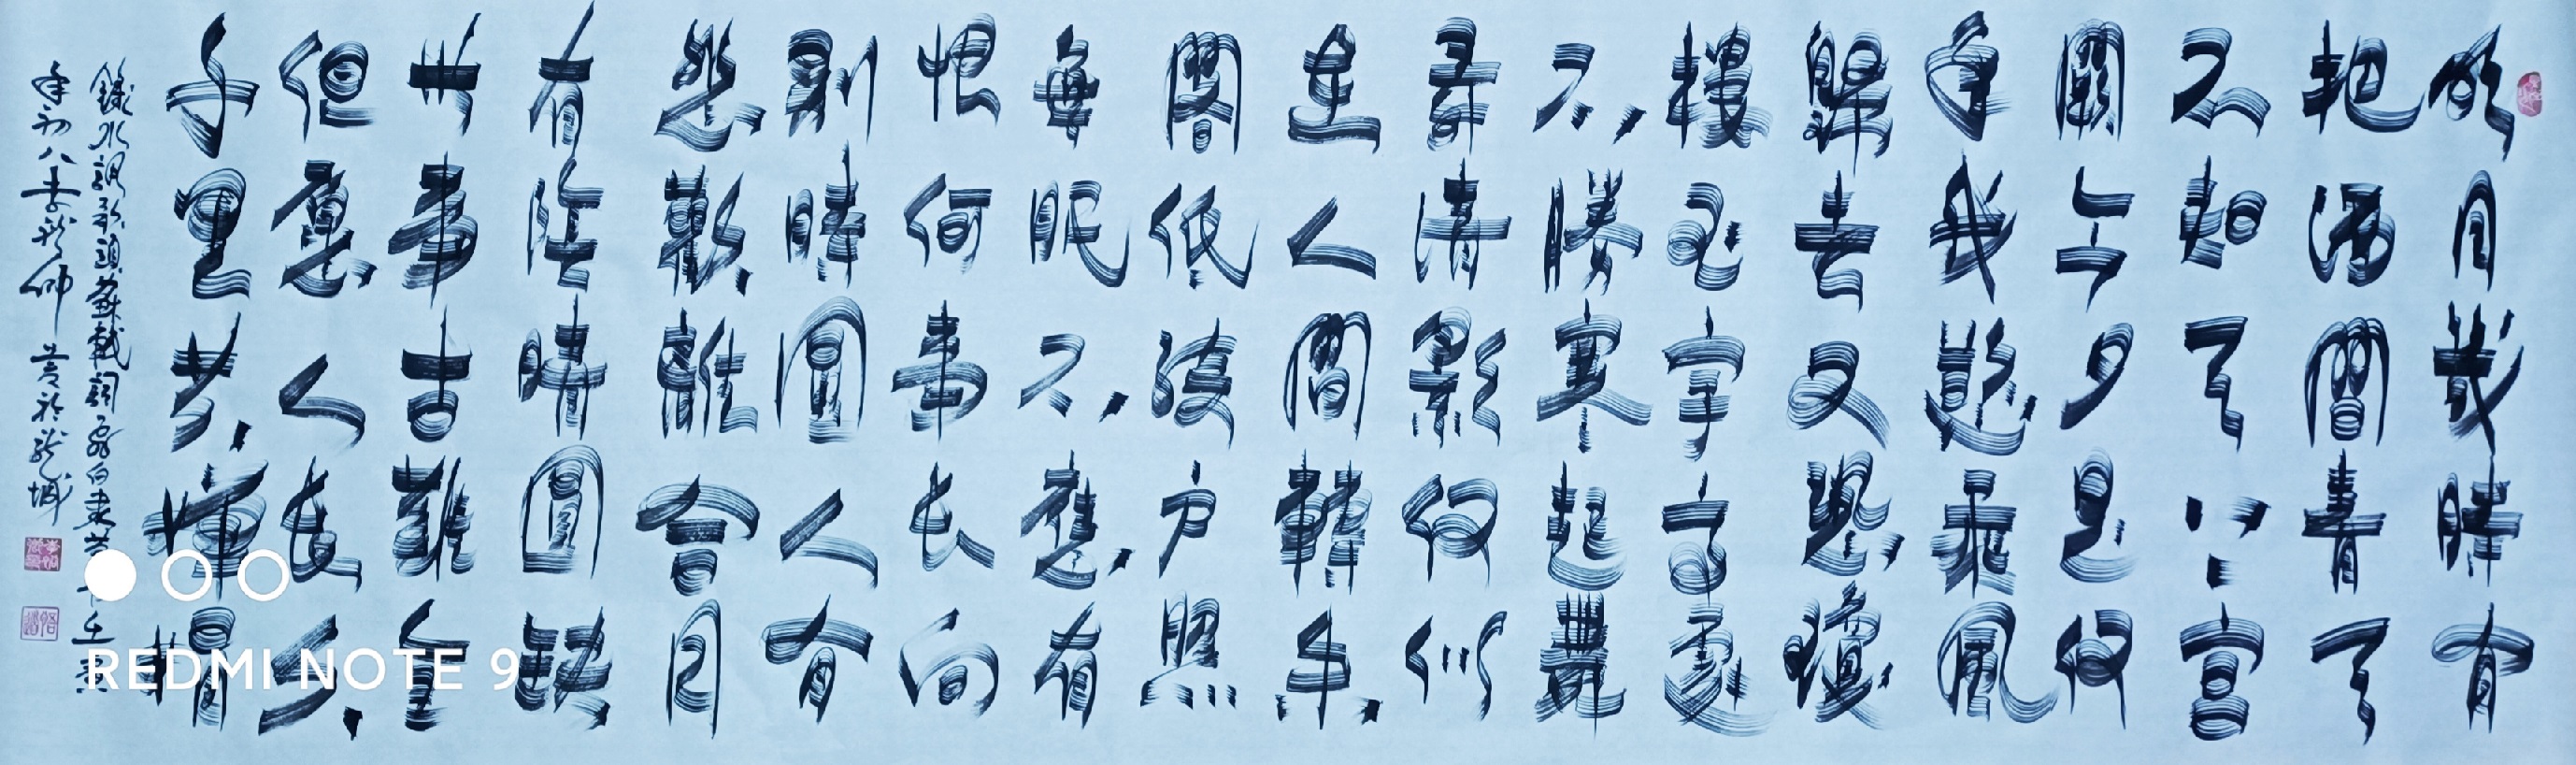 明月幾時有
把酒問青天
不知天上宮
闕今夕是何
年我欲乘風
歸去又恐瓊
樓玉宇高處
不勝寒起舞
弄清影何似
在人間轉朱
閣低綺戶照
無眠不應有
恨何事長向
別時圓人有
悲歡離合月
有陰晴圓缺
此事古難全
但願人長久
千里共嬋娟
錄水調歌頭蘇軾詞飛白書 壬寅
年初八李 書於龍城
REDMI NOTE 9